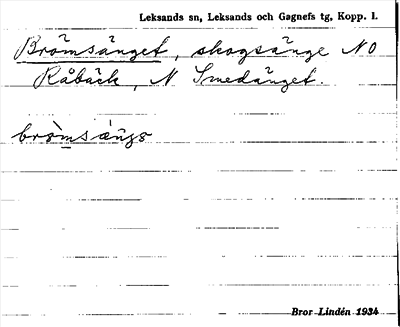 Leksands sn, Leksands och Gagnefs tg, Kopp. l.
Brömsänget, skogsänge NO
Råbäck, N Smedänget.
bròm̲sä̀ŋgə
Bror Lindén 1934